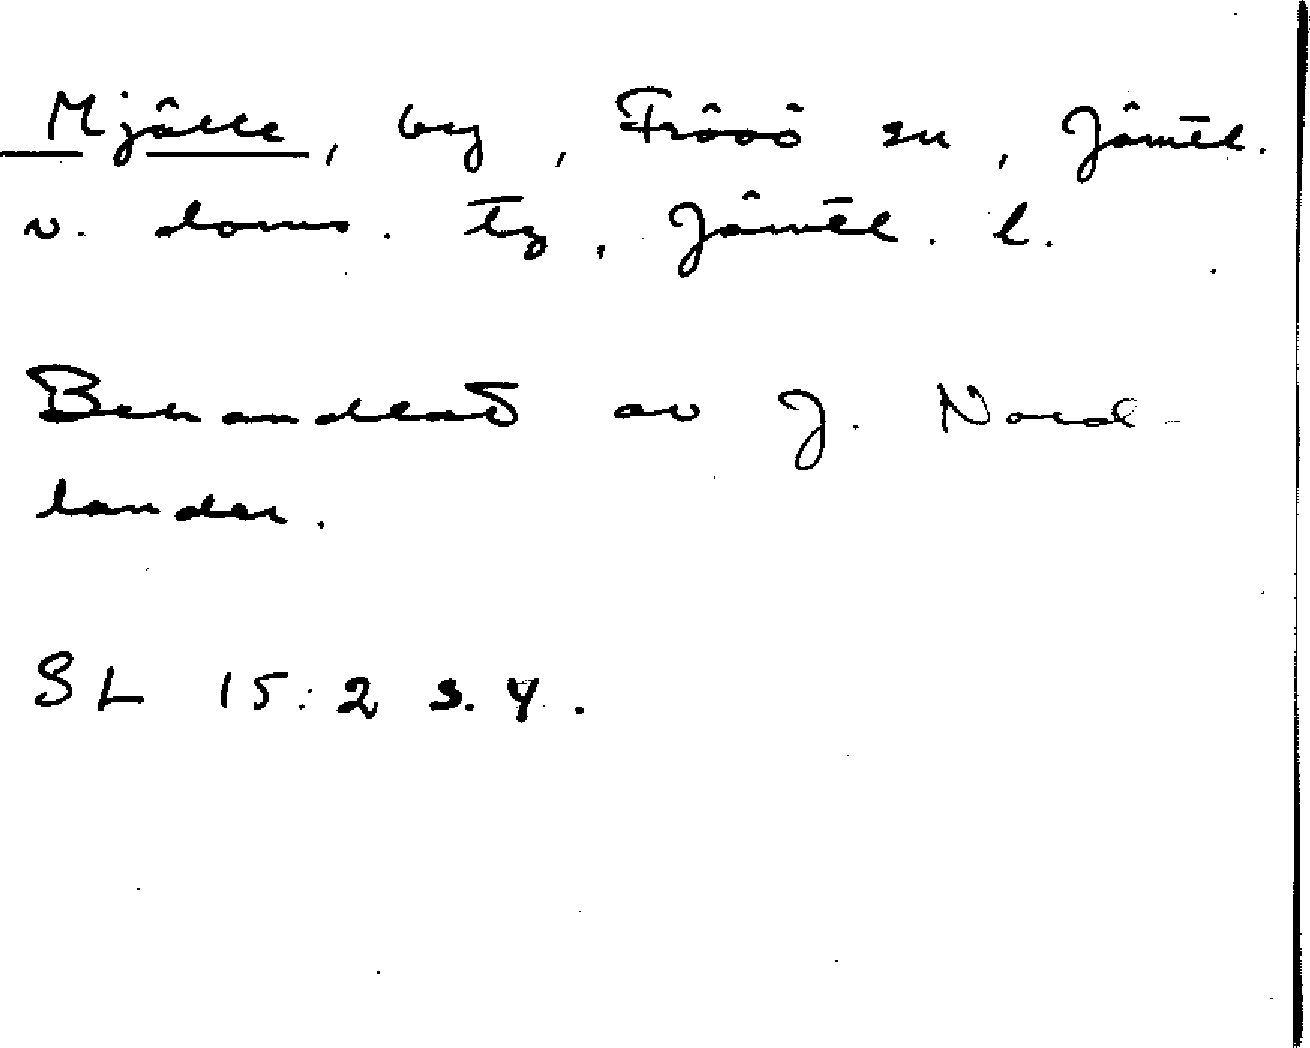 Mjälle, by, Frösö sn, Jämtl.
v. doms. tg, Jämtl. l.
Behandlat av J. Nord-
lander.
SL 15:2 s. 4.